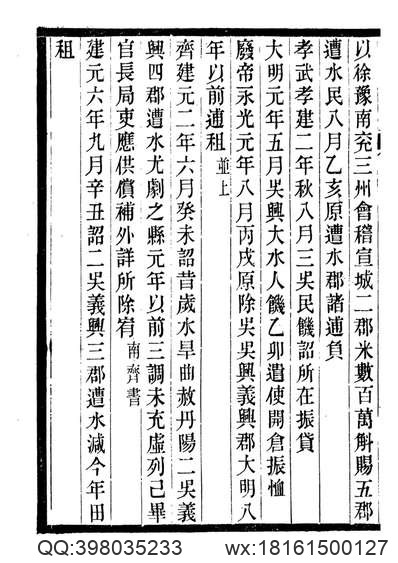 以徐豫南兗三州會稽宣城二郡米數百萬斛賜五郡
遭水民八月乙亥原遭水郡諸逋負
孝武孝建二年秋八月三吳民饑詔所在振貸
大明元年五月吳興大水人饑乙卯遣使開倉振恤
廢帝永光元年八月丙戌原除吳吳興義興郡大明八
年以前逋租並上
齊建元二年六月癸未詔昔歲水旱曲赦丹陽二吳義
興四郡遭水尤劇之縣元年以前三調未充虛列已畢
官長局吏應供償補外詳所除宥南齊書
建元六年九月辛丑詔二吳義興三郡遭水減今年田
租
QQ:398035233
wx:18161500127